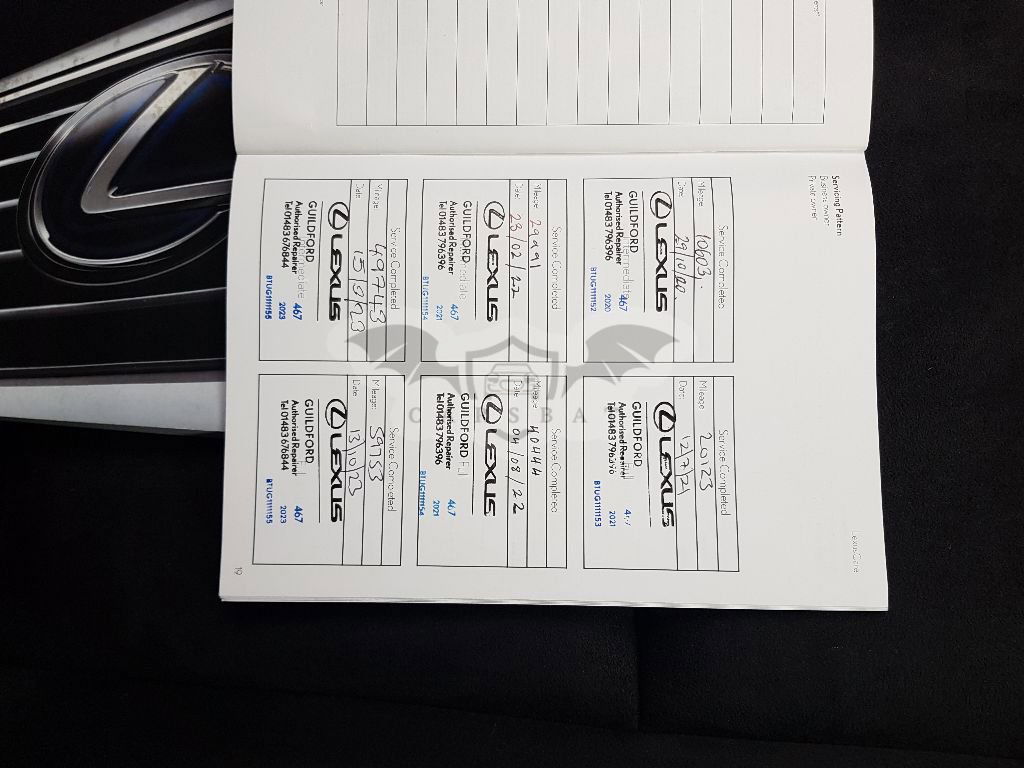 Lexus Care
Servicing Pattern
Business owner
Private owner
Service Completed
Mileage:
Date: 29/10/20.
LEXUS
GUILDFORD
Intermediate
467
Authorised Repairer
Tel 01483 796396
2020
BTUG1111152
Service Completed
Mileage: 20123
Date: 12/7/21
LEXUS
GUILDFORD
Full
467
Authorised Repairer
Tel 01483 796396
2021
BTUG1111153
Service Completed
Mileage: 29991
Date: 23/02/22
LEXUS
GUILDFORD
467
Authorised Repairer
Tel 01483 796396
2021
BTUG1111154
Service Completed
Mileage: 40444
Date: 04/08/22
LEXUS
GUILDFORD
Full
467
Authorised Repairer
Tel 01483 796396
2021
BTUG1111154
Service Completed
Mileage: 49743
Date:
LEXUS
GUILDFORD
Intermediate
467
Authorised Repairer
Tel 01483 676844
2023
BTUG1111155
Service Completed
Mileage: 59753
Date: 13/10/23
LEXUS
GUILDFORD
467
Authorised Repairer
Tel 01483 676844
2023
BTUG1111155
19